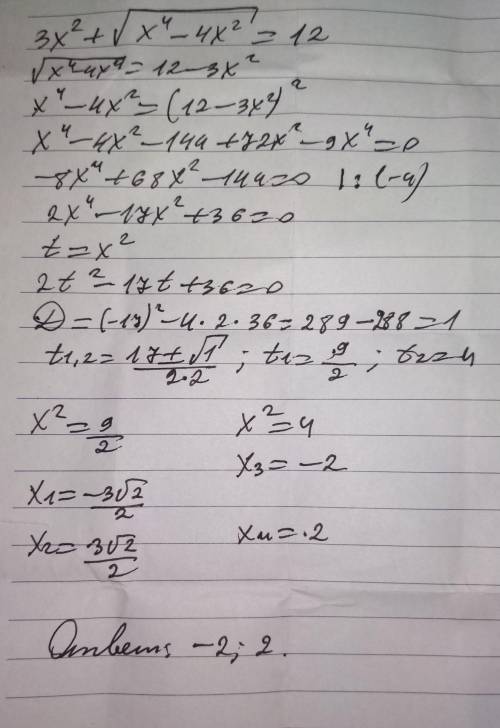 3x² + √(x⁴ − 4x²) = 12
√(x⁴ − 4x⁴) = 12 − 3x²
x⁴ − 4x² = (12 − 3x²)²
x⁴ − 4x² − 144 + 72x² − 9x⁴ = 0
−8x⁴ + 68x² − 144 = 0 | : (−4)
2x⁴ − 17x² + 36 = 0
t = x²
2t² − 17t + 36 = 0
D = (−17)² − 4 · 2 · 36 = 289 − 288 = 1
t1,2 = (17 + √1)/(2·2) ; t1 = 9/2 ; t2 = 4
x² = 9/2 x² = 4
x3 = −2
x1 = −3√2/2
x2 = 3√2/2 x4 = 2
Ответ: −2; 2.